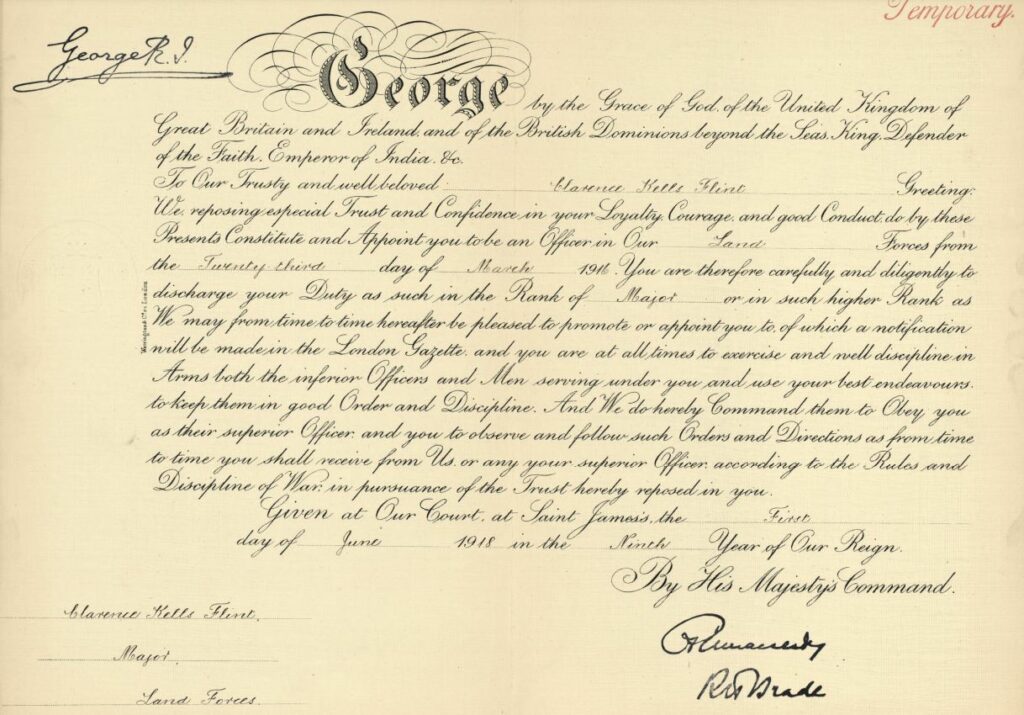 Temporary.
George R.I.
George by the Grace of God, of the United Kingdom of
Great Britain and Ireland, and of the British Dominions beyond the Seas, King, Defender
of the Faith, Emperor of India, &c.
To Our Trusty and well beloved Clarence Kells Flint Greeting:
We, reposing especial Trust and Confidence in your Loyalty, Courage, and good Conduct, do by these
Presents Constitute and Appoint you to be an Officer in Our Land Forces from
the Twenty third day of March 1916. You are therefore carefully and diligently to
discharge your Duty as such in the Rank of Major or in such higher Rank as
We may from time to time hereafter be pleased to promote or appoint you to, of which a notification
will be made in the London Gazette, and you are at all times to exercise and well discipline in
Arms both the inferior Officers and Men serving under you and use your best endeavours
to keep them in good Order and Discipline. And We do hereby Command them to Obey you
as their superior Officer, and you to observe and follow such Orders and Directions as from time
to time you shall receive from Us, or any your superior Officer, according to the Rules and
Discipline of War, in pursuance of the Trust hereby reposed in you.
Given at Our Court, at Saint James's, the First
day of June 1918 in the Ninth Year of Our Reign.
By His Majesty's Command.
Clarence Kells Flint.
Major.
Land Forces.
R H Brade